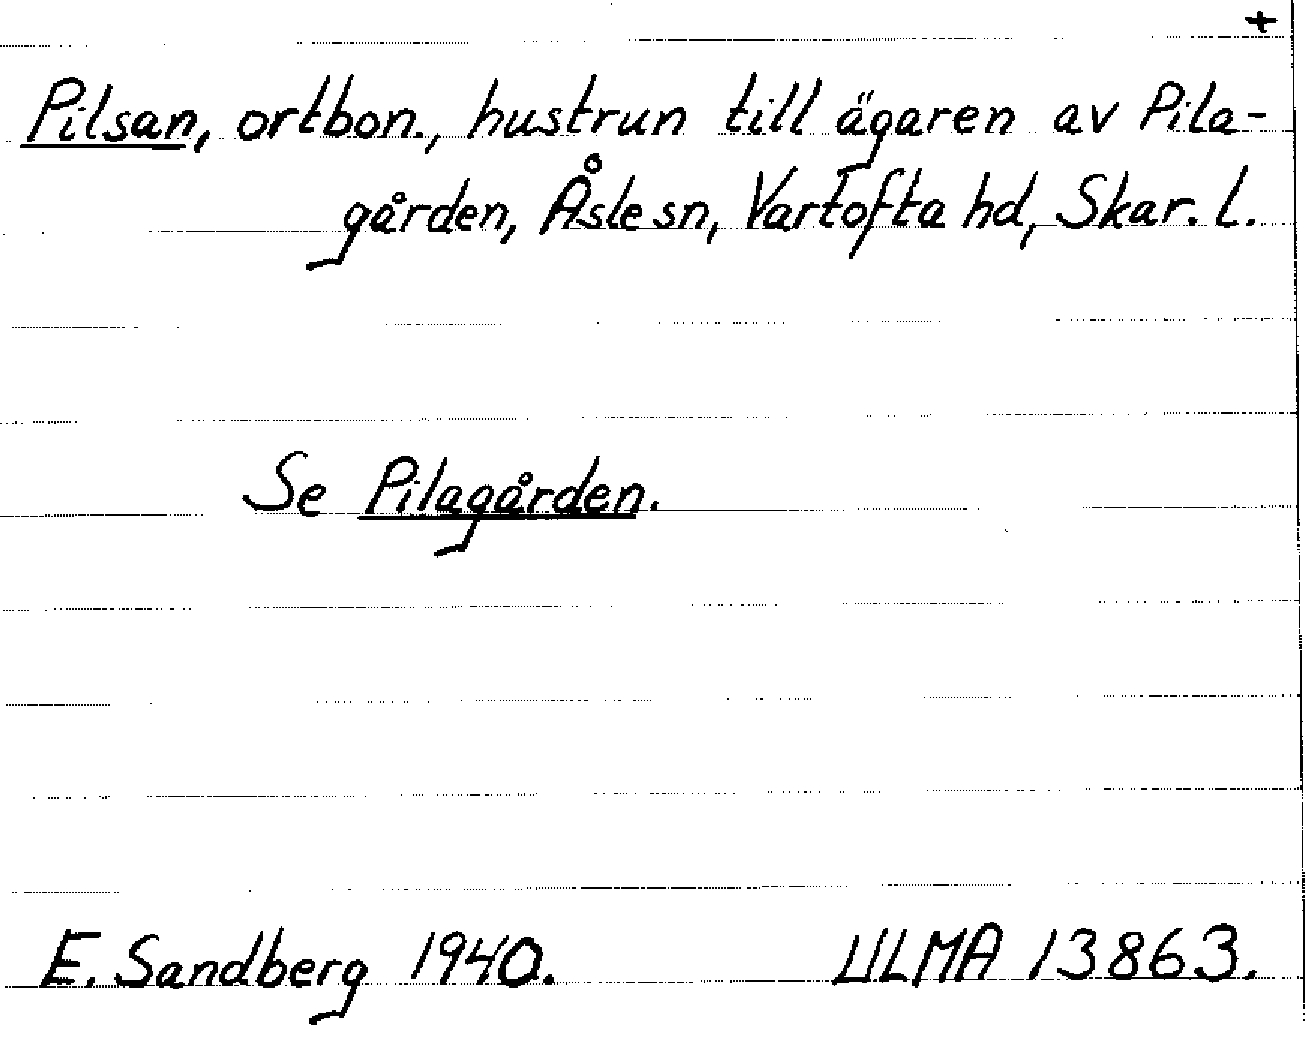 +
Pilsan, ortbon., hustrun till ägaren av Pila-
gården, Åsle sn, Vartofta hd, Skar. l.
Se Pilagården.
E. Sandberg 1940. ULMA 13863.